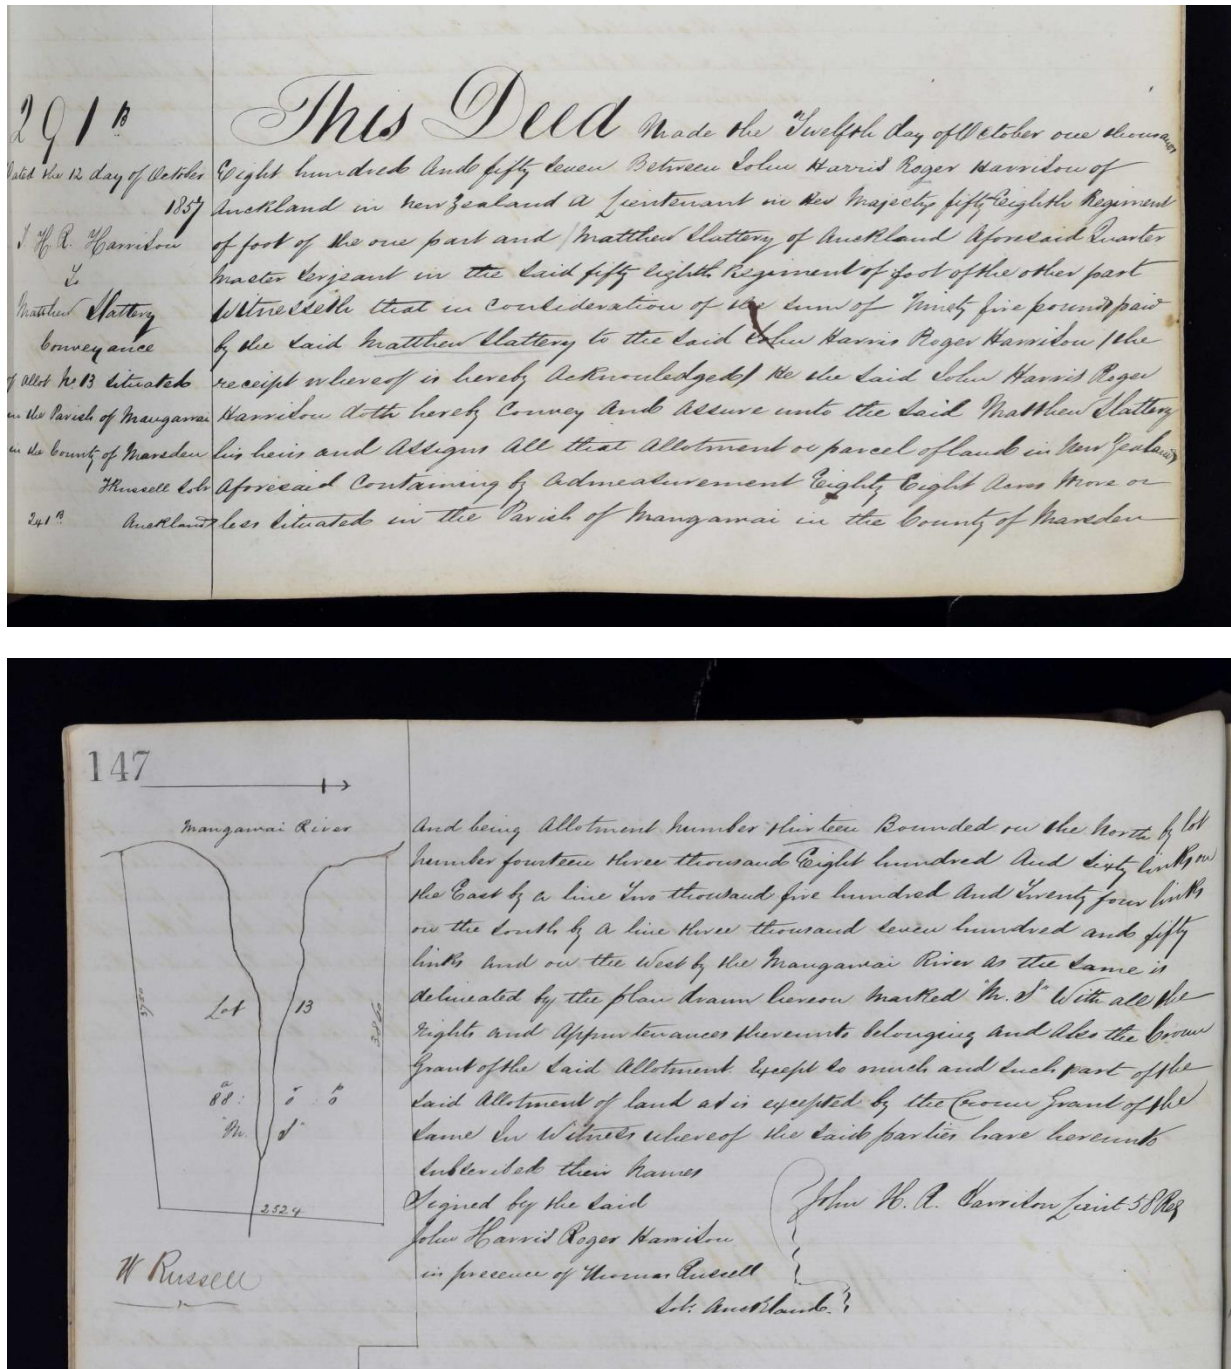 291 B
Dated the 12 day of October
1857
J H. R. Harrison
To
Matthew Slattery
Conveyance
of Allot No. 13 Situated
in the Parish of Mangawai
in the County of Marsden
T Russell Solr
241 B Auckland
This Deed Made the Twelfth day of October one thousand
Eight hundred And fifty seven Between John Harris Roger Harrison of
Auckland in New Zealand A Lieutenant in Her Majestys fifty Eighth Regiment
of foot of the one part and Matthew Slattery of Auckland Aforesaid Quarter
Master Serjeant in the said fifty eighth Regiment of foot of the other part
Witnesseth that in Consideration of the sum of Ninety five pounds paid
by the said Matthew Slattery to the said John Harris Roger Harrison /the
receipt whereof is hereby Acknowledged/ He the said John Harris Roger
Harrison doth hereby Convey And Assure unto the said Matthew Slattery
his heirs and Assigns All that Allotment or parcel of land in New Zealand
Aforesaid Containing by Admeasurement Eighty Eight Acres More or
less Situated in the Parish of Mangawai in the County of Marsden
147
Mangawai River
3750
Lot 13
3860
a r p
88 : 0 : 0
"M. S"
2524
W Russell
And being Allotment Number thirteen Bounded on the North by lot
Number fourteen three thousand Eight hundred And Sixty links on
the East by a line Two thousand five hundred And Twenty four links
on the South by a line three thousand seven hundred and fifty
links And on the West by the Mangawai River as the same is
delineated by the plan drawn hereon Marked "M. S" With all the
Rights and Appurtenances thereunto belonging and Also the Crown
Grant of the said Allotment. Except so much and such part of the
said Allotment of land as is excepted by the Crown Grant of the
same In Witness whereof the said parties have hereunto
subscribed their Names
Signed by the said
John Harris Roger Harrison
in presence of Thomas Russell
Solr Auckland.
John H. R. Harrison Lieut 58 Reg